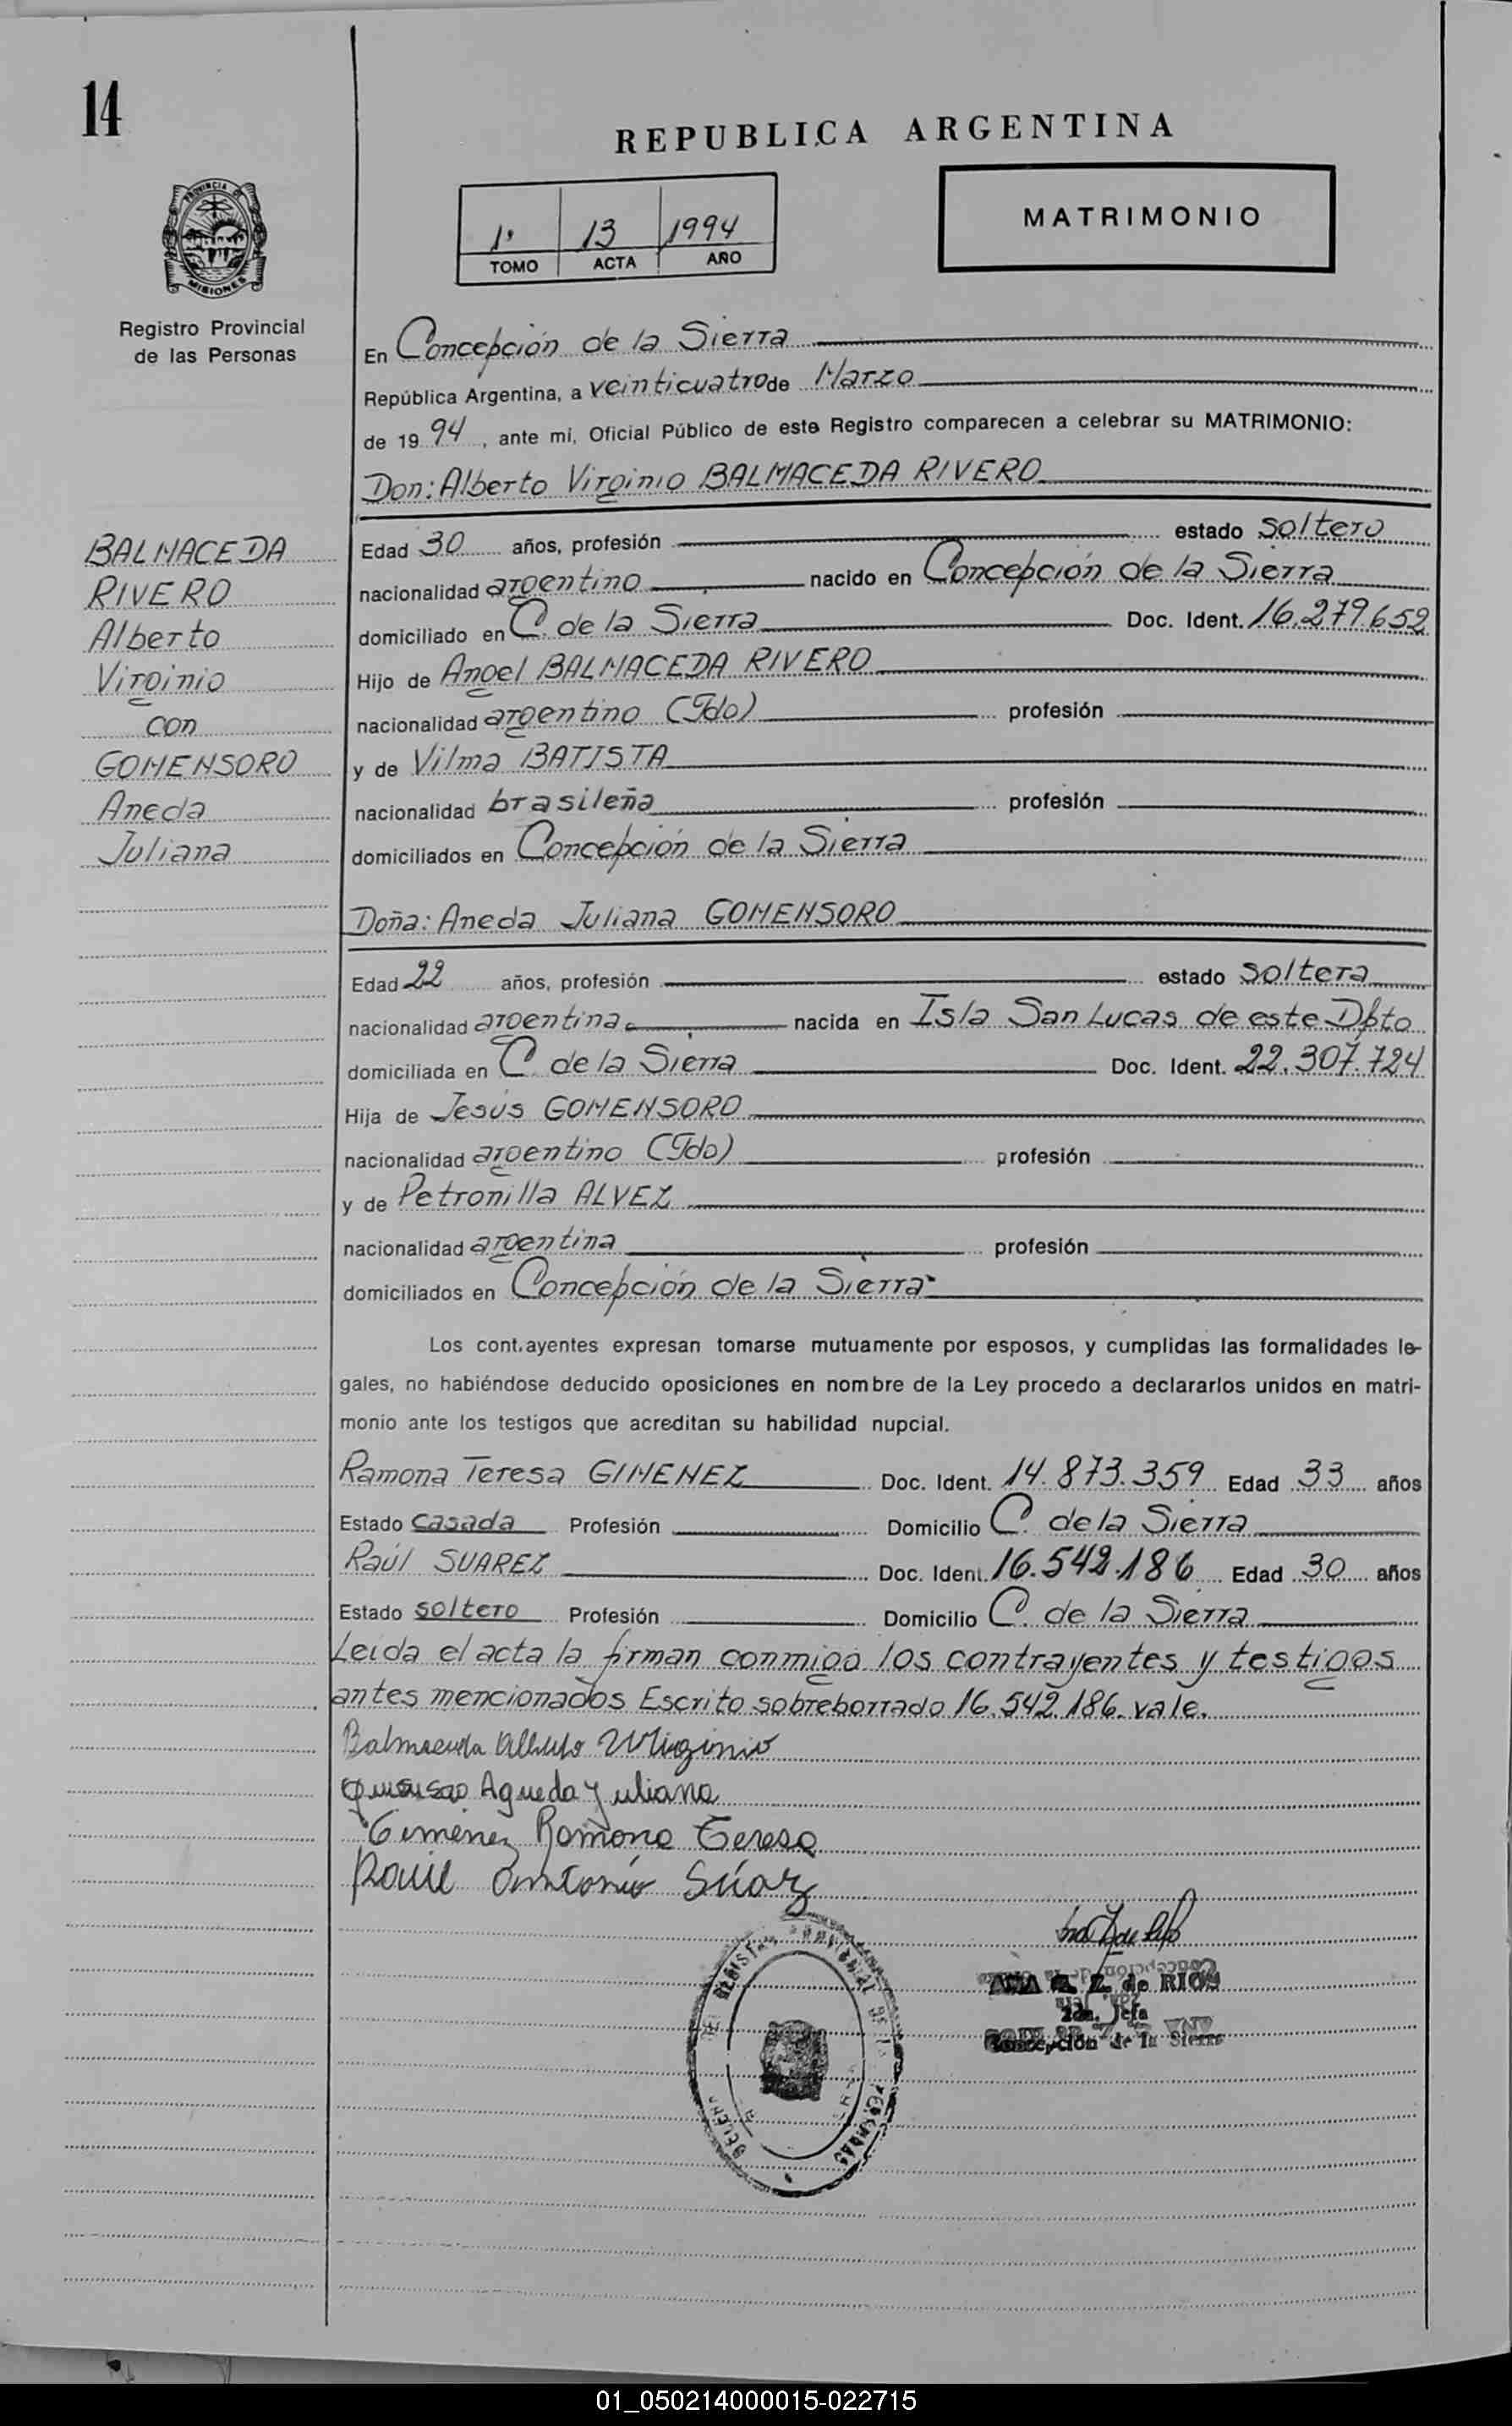 14
REPUBLICA ARGENTINA
1º 13 1994
TOMO ACTA AÑO
MATRIMONIO
PROVINCIA DE
MISIONES
Registro Provincial
de las Personas
En Concepción de la Sierra
República Argentina, a veinticuatro de Marzo
de 19 94, ante mi, Oficial Público de este Registro comparecen a celebrar su MATRIMONIO:
Don: Alberto Virginio BALMACEDA RIVERO
BALMACEDA
RIVERO
Alberto
Virginio
con
GOMENSORO
Aneda
Juliana
Edad 30 años, profesión estado soltero
nacionalidad argentino nacido en Concepción de la Sierra
domiciliado en C. de la Sierra Doc. Ident. 16.279.652
Hijo de Angel BALMACEDA RIVERO
nacionalidad argentino (Fdo) profesión
y de Vilma BATISTA
nacionalidad brasileña profesión
domiciliados en Concepción de la Sierra
Doña: Aneda Juliana GOMENSORO
Edad 22 años, profesión estado soltera
nacionalidad argentina nacida en Isla San Lucas de este Dpto
domiciliada en C. de la Sierra Doc. Ident. 22.307.724
Hija de Jesús GOMENSORO
nacionalidad argentino (Fdo) profesión
y de Petronilla ALVEZ
nacionalidad argentina profesión
domiciliados en Concepción de la Sierra
Los contrayentes expresan tomarse mutuamente por esposos, y cumplidas las formalidades le-
gales, no habiéndose deducido oposiciones en nombre de la Ley procedo a declararlos unidos en matri-
monio ante los testigos que acreditan su habilidad nupcial.
Ramona Teresa GIMENEZ Doc. Ident. 14.873.359 Edad 33 años
Estado casada Profesión Domicilio C. de la Sierra
Raúl SUAREZ Doc. Ident. 16.542.186 Edad 30 años
Estado soltero Profesión Domicilio C. de la Sierra
Leida el acta la firman conmigo los contrayentes y testigos
antes mencionados Escrito sobreborrado 16.542.186. vale.
Balmaceda Alberto Virginio
Agueda Yuliana
Gimenez Ramona Teresa
Raúl Antonio Súaz
ANA Z. de RIOS
2da. Jefa
Concepción de la Sierra
01_050214000015-022715